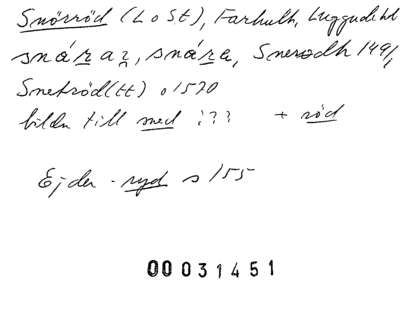 Snörröd (L o St), Farhult, Luggude hd
snáraz, snára, Snerødh 1491,
Snetröd(tt) o 1570
bildn till sned ??? + röd
Ejder-ryd s 155
00031451